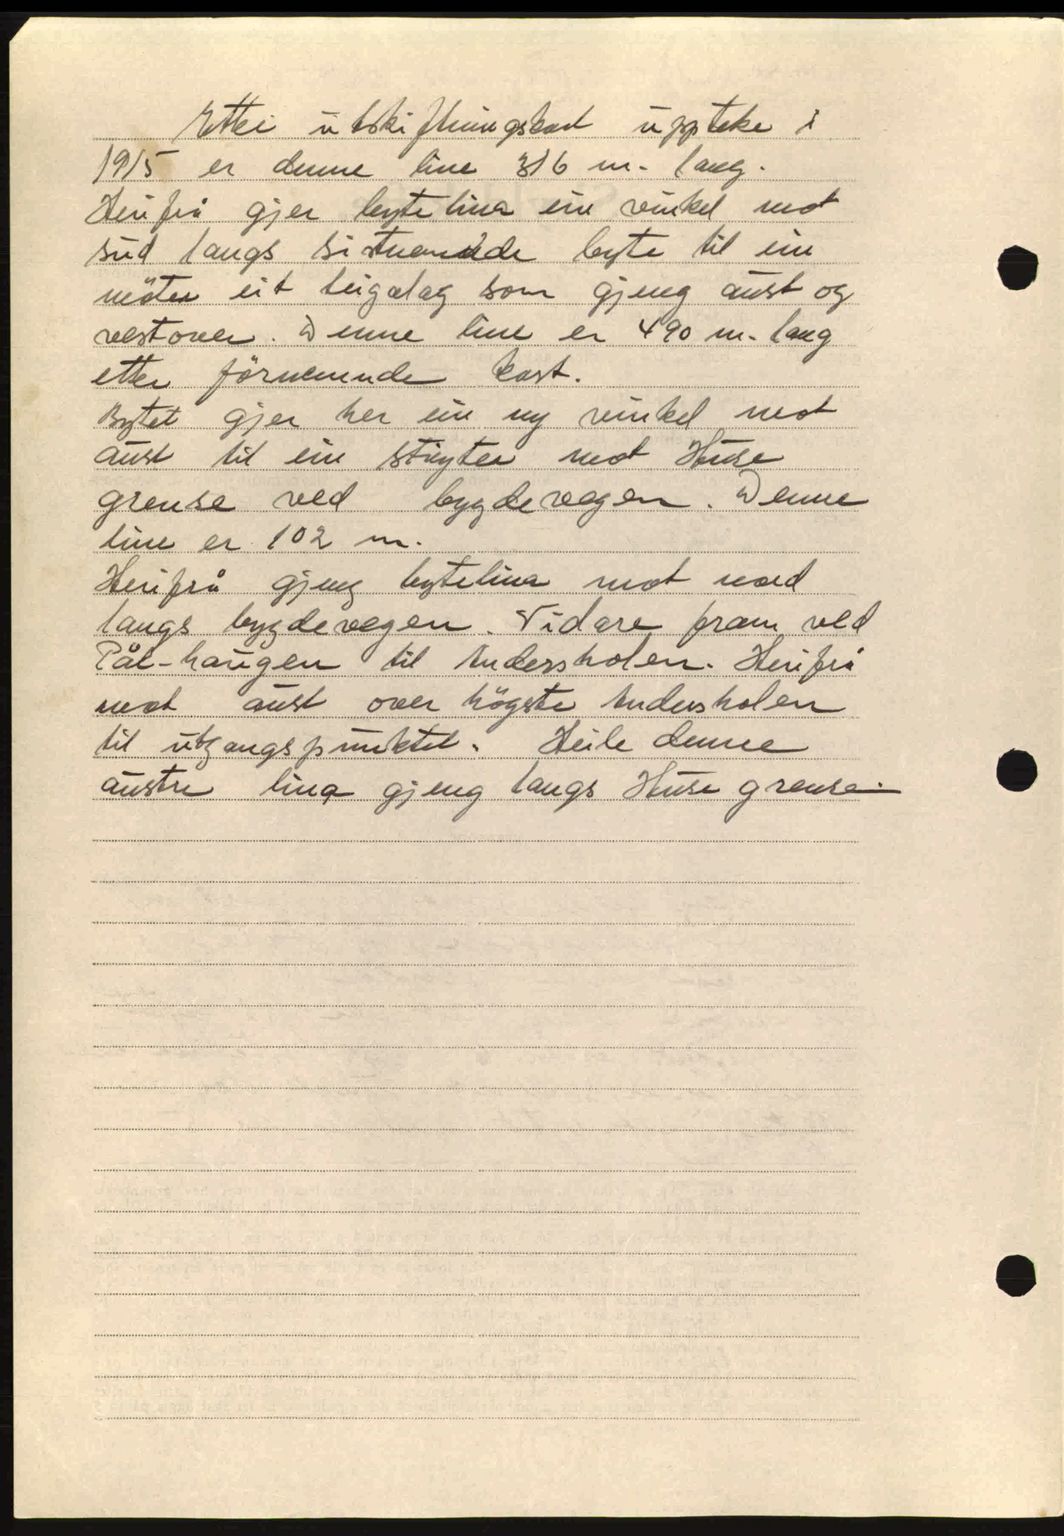 Etter utskiftningskart uppteke i
1915 er denne line 316 m. lang.
Herifrå gjer bytelina ein vinkel mot
sud langs sistnemnde byte til ein
møter eit teigalag som gjeng aust og
vestover. Denne line er 490 m. lang
etter förnemnde kart.
Bytet gjer her ein ny vinkel mot
aust til ein støyter mot Huse
grense ved bygdevegen. Denne
line er 102 m.
Herifrå gjeng bytelina mot nord
langs bygdevegen. Vidare fram ved
Pål-haugen til Andersholen. Herifrå
mot aust over högste Andersholen
til utgangspunktet. Heile denne
austre lina gjeng langs Huse grense.